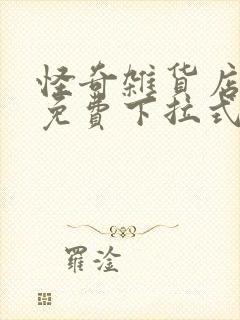 怪奇雜貨店
免費下拉式
羅淦